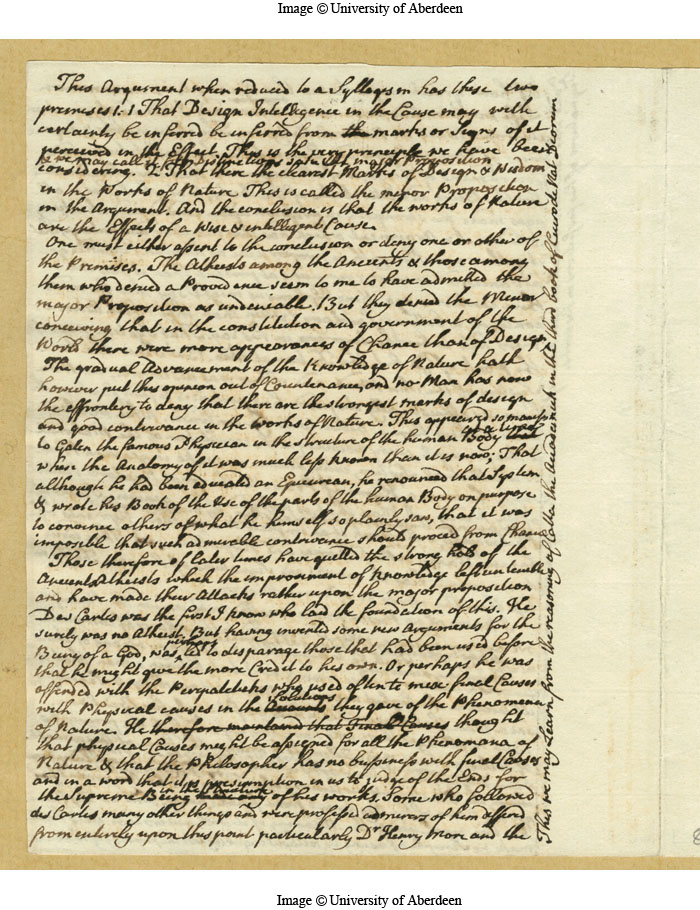 Image © University of Aberdeen
This Argument when reduced to a Syllogism has these two
premises: 1 That Design Intelligence in the Cause may with
certainty be inferred be inferred from the marks or Signs of it
perceived in the Effect. This is the very principle we have been
& we may call it by distinction the major Proposition
considering. 2. That there the clearest Marks of Design & Wisdom
in the Works of Nature This is called the minor Proposition
in the Argument. And the conclusion is that the works of Nature
are the Effects of a Wise & intelligent Cause.
One must either assent to the conclusion or deny one or other of
the Premises. The Atheists among the Ancients & those among
them who denied a Providence seem to me to have admitted the
major Proposition as undeniable. But they denied the Minor
conceiving that in the constitution and government of the
World there were more appearances of Chance than of Design
The gradual Advancement of the Knowledge of Nature hath
however put this opinion out of Countenance, and no Man has now
the effrontery to deny that there are the strongest marks of design
and good contrivance in the works of Nature. This appeared so manifest
to Galen the famous Physician in the structure of the human Body at a time
when the Anatomy of it was much less known than it is now; That
although he had been educated an Epicurean, he renounced that System
& wrote his Book of the Use of the parts of the human Body on purpose
to convince others of what he himself so plainly saw, that it was
impossible that such admirable contrivance should proceed from Chance
Those therefore of later times have quitted the strong hold of the
Ancient Atheists which the improvement of Knowledge left untenable
and have made their Attacks rather upon the major proposition
Des Cartes was the first I know who laid the foundation of this. He
surely was no Atheist, But having invented some new Arguments for the
perhaps
Being of a God, was led to disparage those that had been used before
that he might give the more Credit to his own. Or perhaps he was
offended with the Peripateticks who used often to mix final Causes
Solutions
with Physical causes in the Accounts they gave of the Phenomena
of Nature. He therefore maintained that Final Causes thought
that physical Causes might be assigned for all the Phenomena of
Nature & that the Philosopher has no bussiness with final Causes
and in a word that it is presumption in us to judge of the Ends for
in the structure
the Supreme Being made any of his works. Some who followed
des Cartes many other things and were professed admirers of him differd
from entirely upon this point particularly Dr Henry More and the
This we may Learn from the reasoning of Cotta the Academick in the third book of Cicero de Nat Deorum
Image © University of Aberdeen